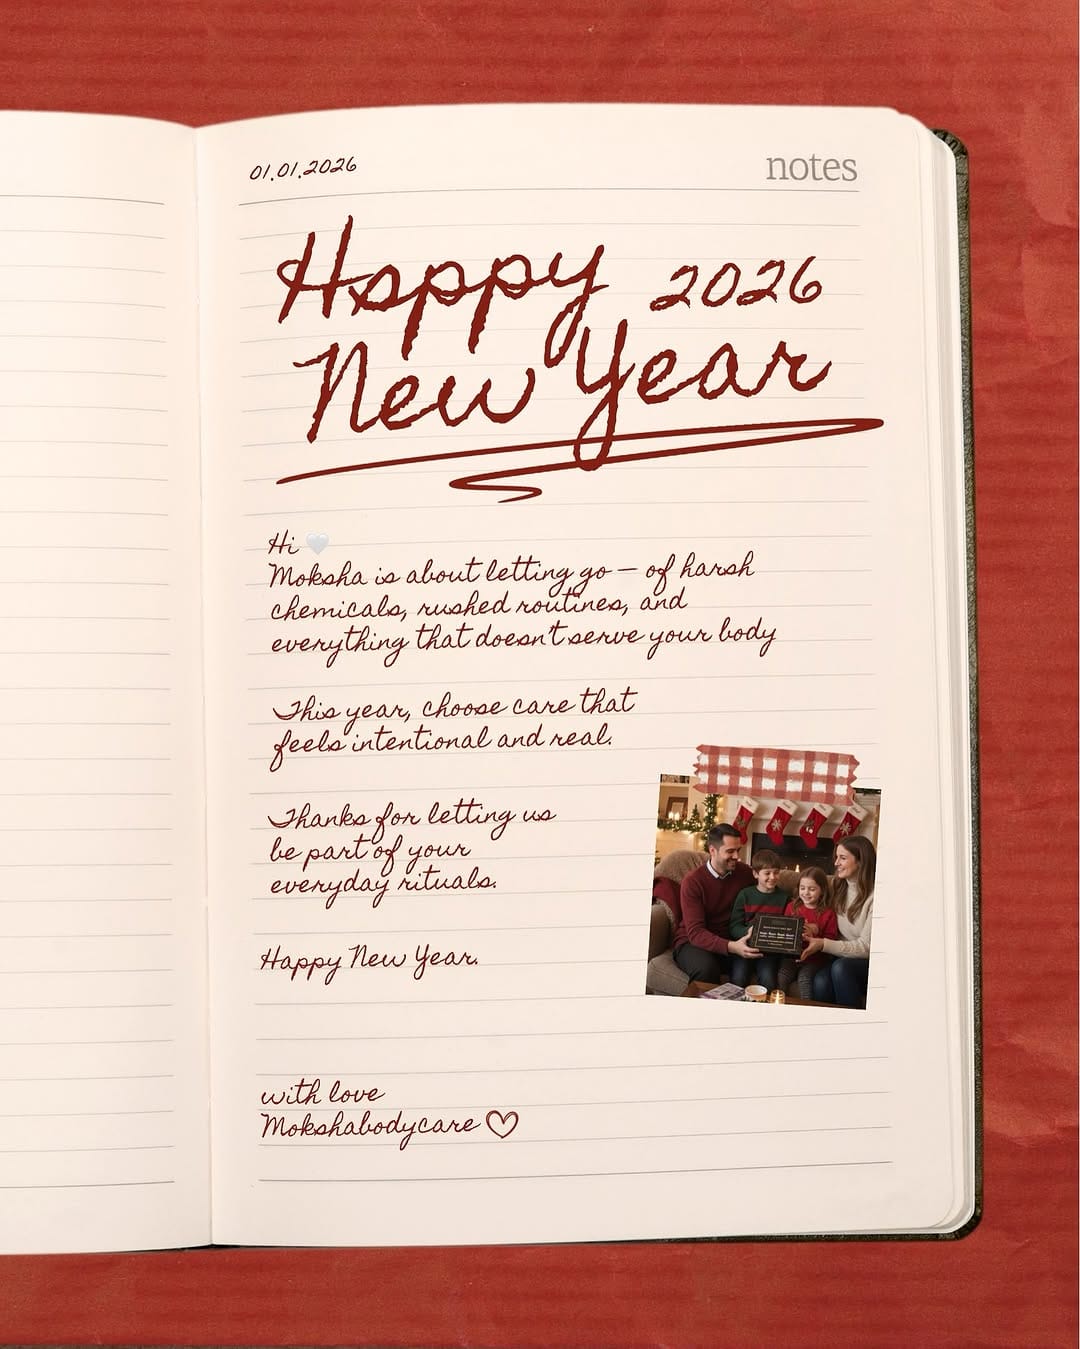 01.01.2026
notes
Happy 2026
New Year
Hi 🤍
Moksha is about letting go — of harsh
chemicals, rushed routines, and
everything that doesn't serve your body
This year, choose care that
feels intentional and real.
Thanks for letting us
be part of your
everyday rituals.
Happy New Year.
with love
Mokshabodycare ♡